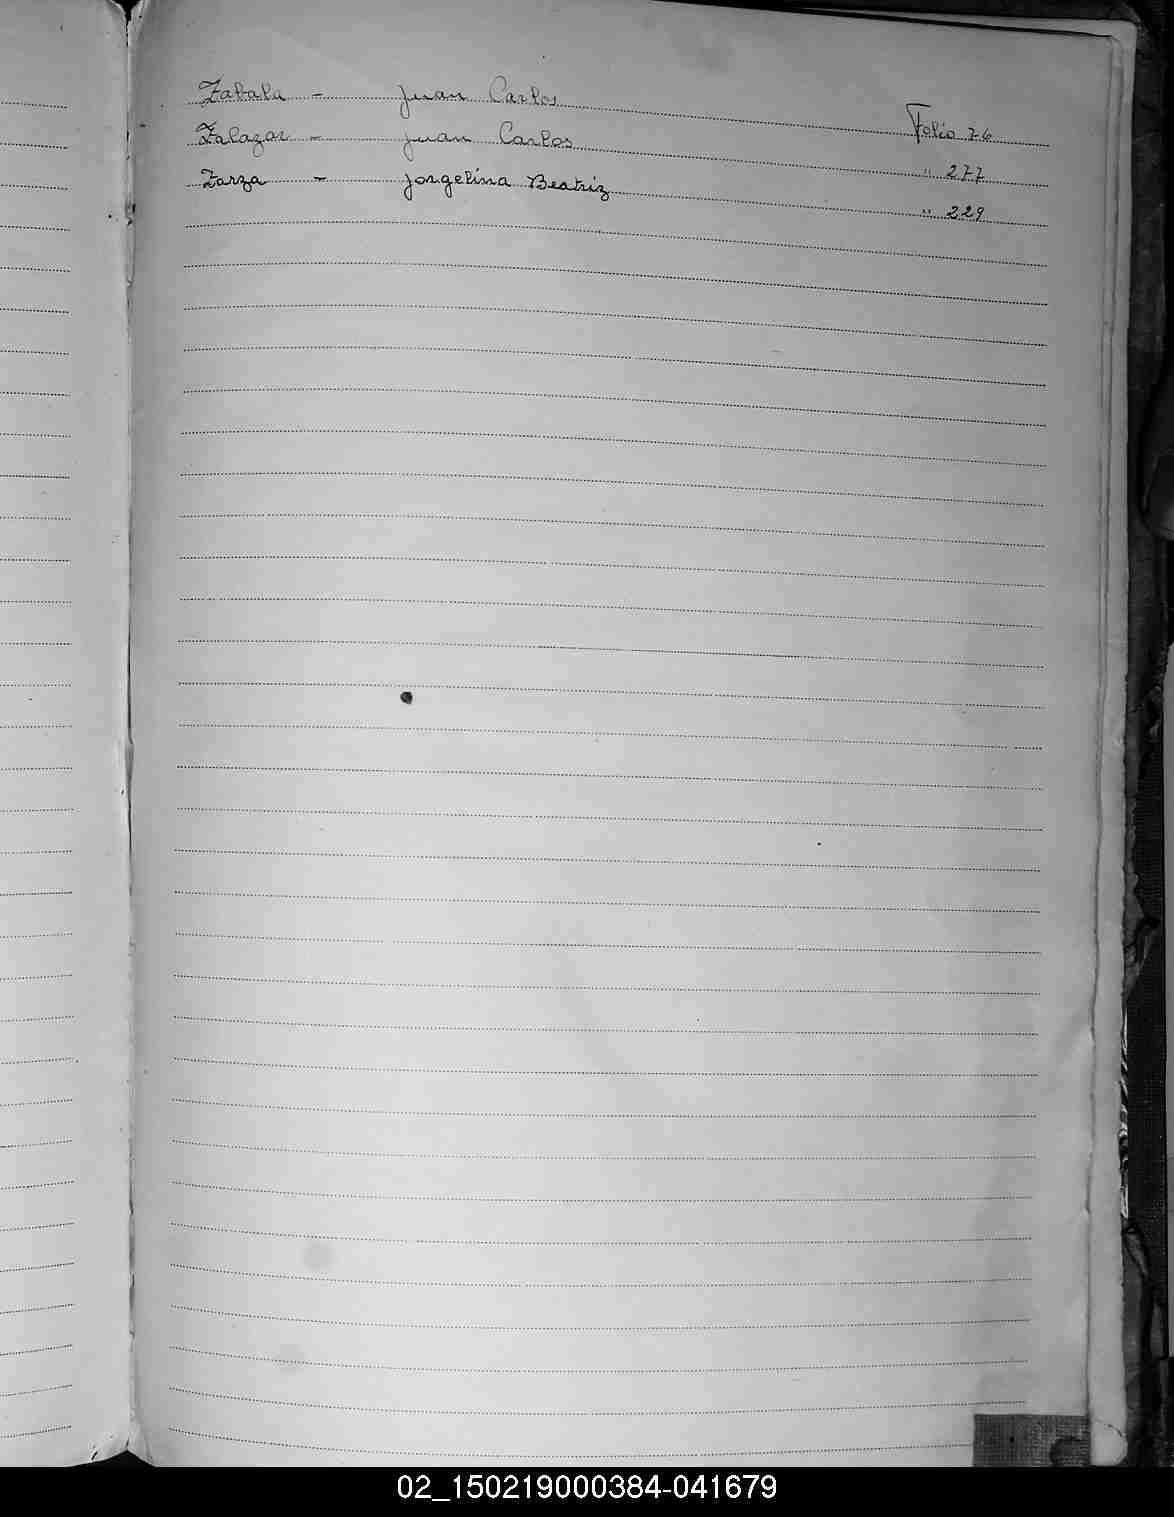 Zabala - Juan Carlos Folio 76
Zalazar - Juan Carlos " 277
Zarza - Jorgelina Beatriz " 229
02_150219000384-041679